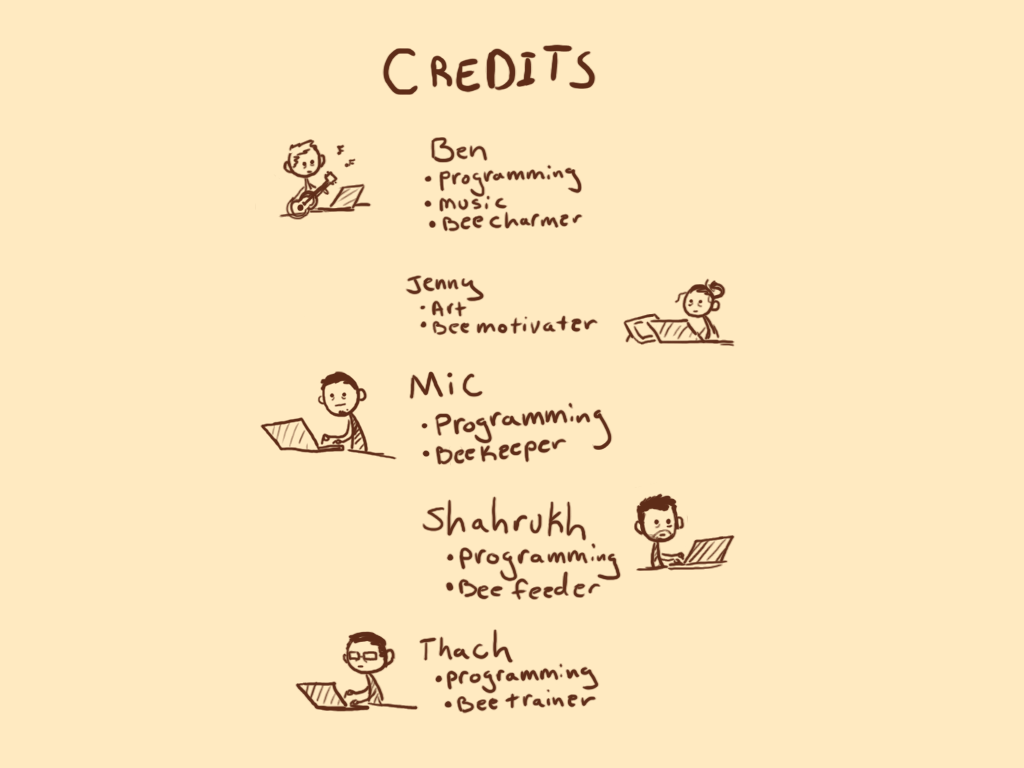 CREDITS
Ben
• Programming
• Music
• Bee charmer
Jenny
• Art
• Bee motivater
Mic
• Programming
• Beekeeper
Shahrukh
• Programming
• Bee feeder
Thach
• Programming
• Bee trainer